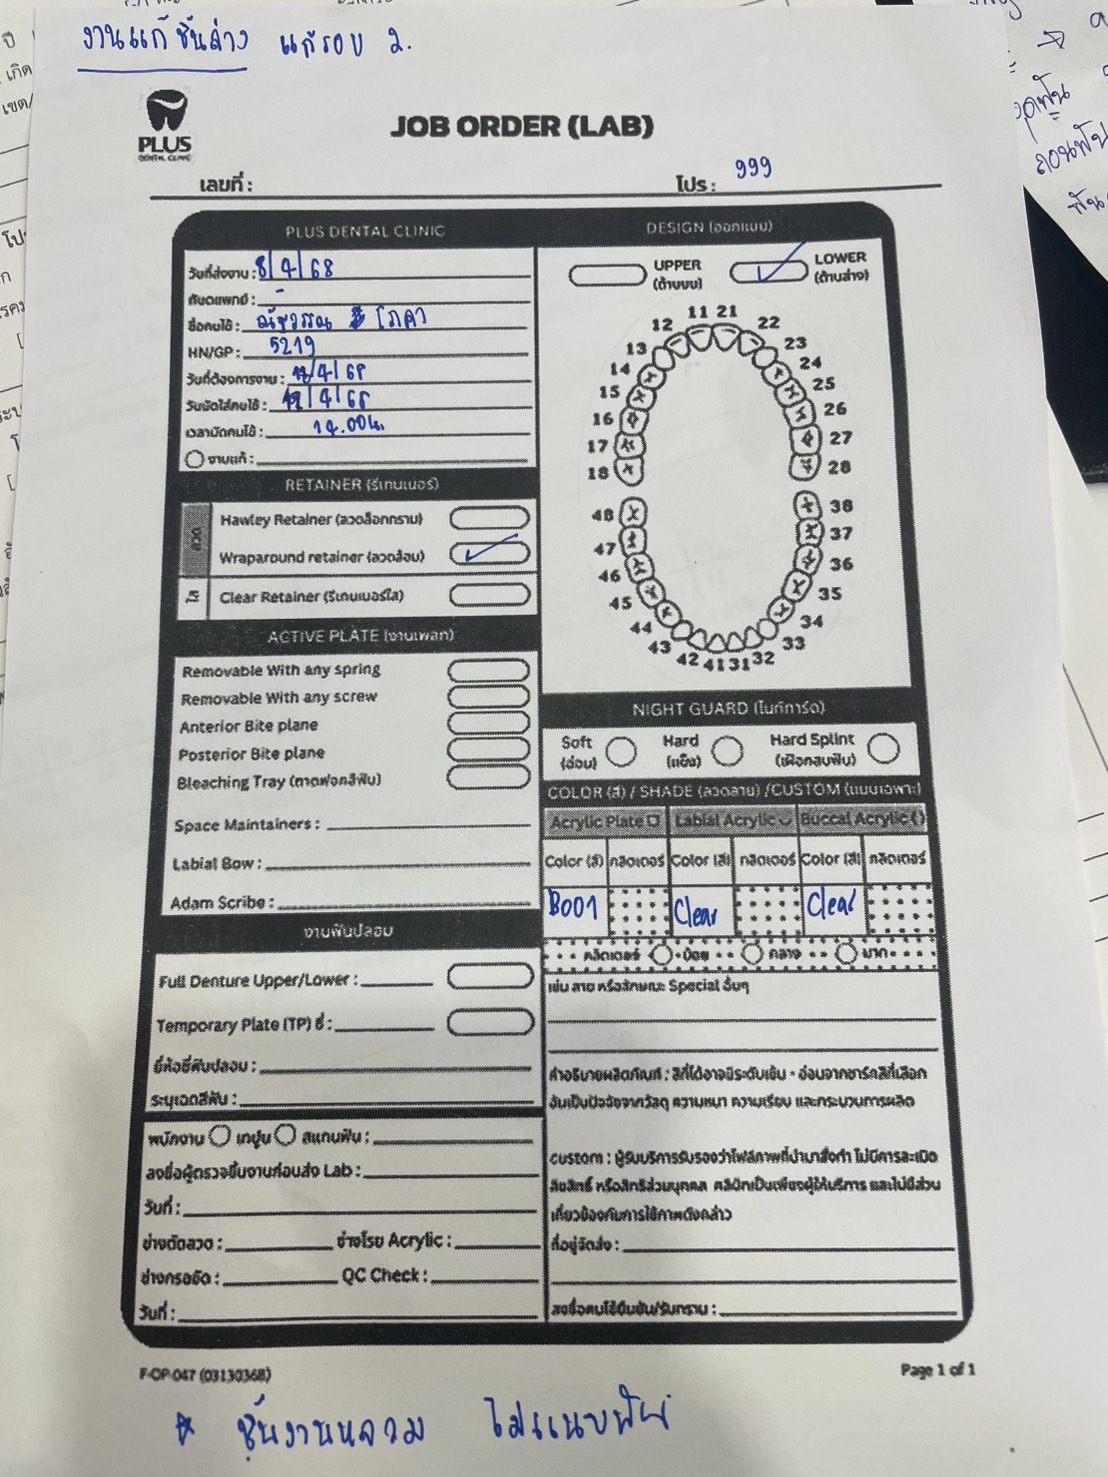 งานแก้ ชิ้นล่าง แก้รอบ 2.
PLUS
DENTAL CLINIC
JOB ORDER (LAB)
เลขที่ :
โปร : 999
PLUS DENTAL CLINIC
วันที่ส่งงาน : 8/4/68
ทันตแพทย์ : -
ชื่อคนไข้ : ณัฐวรรณ โภคา
HN/GP : 5219
วันที่ต้องการงาน : /4/68
วันนัดใส่คนไข้ : /4/68
เวลานัดคนไข้ : 14.00น.
งานแก้ :
RETAINER (รีเทนเนอร์)
ลวด
Hawley Retainer (ลวดล็อกกราม)
Wraparound retainer (ลวดล้อม)
ใส
Clear Retainer (รีเทนเนอร์ใส)
ACTIVE PLATE (งานเพลท)
Removable With any spring
Removable With any screw
Anterior Bite plane
Posterior Bite plane
Bleaching Tray (ถาดฟอกสีฟัน)
Space Maintainers :
Labial Bow :
Adam Scribe :
งานฟันปลอม
Full Denture Upper/Lower :
Temporary Plate (TP) ซี่ :
ยี่ห้อซี่ฟันปลอม :
ระบุเฉดสีฟัน :
พนักงาน เทปูน สแกนฟัน :
ลงชื่อผู้ตรวจชิ้นงานก่อนส่ง Lab :
วันที่ :
ช่างดัดลวด : ช่างโรย Acrylic :
ช่างกรอขัด : QC Check :
วันที่ :
DESIGN (ออกแบบ)
UPPER
(ด้านบน)
LOWER
(ด้านล่าง)
11 21
12 22
13 23
14 24
15 25
16 26
17 27
18 28
48 38
47 37
46 36
45 35
44 34
43 33
42 41 31 32
NIGHT GUARD (ไนท์การ์ด)
Soft
(อ่อน)
Hard
(แข็ง)
Hard Splint
(เฝือกสบฟัน)
COLOR (สี) / SHADE (ลวดลาย) /CUSTOM (แบบเฉพาะ)
Acrylic Plate Labial Acrylic Buccal Acrylic ( )
Color (สี) กลิตเตอร์ Color (สี) กลิตเตอร์ Color (สี) กลิตเตอร์
B001 Clear Clear
กลิตเตอร์ น้อย กลาง มาก
เช่น ลาย หรือลักษณะ Special อื่นๆ
คำอธิบายผลิตภัณฑ์ : สีที่ได้อาจมีระดับเข้ม - อ่อนจากชาร์ตสีที่เลือก
อันเป็นปัจจัยจากวัสดุ ความหนา ความเรียบ และกระบวนการผลิต
custom : ผู้รับบริการรับรองว่าไฟล์ภาพที่นำมาสั่งทำ ไม่มีการละเมิด
ลิขสิทธิ์ หรือสิทธิส่วนบุคคล คลินิกเป็นเพียงผู้ให้บริการ และไม่มีส่วน
เกี่ยวข้องกับการใช้ภาพดังกล่าว
ที่อยู่จัดส่ง :
ลงชื่อคนไข้ยืนยัน/รับทราบ :
F-OP-047 (03130368)
Page 1 of 1
* ชิ้นงานหลวม ไม่แนบฟัน